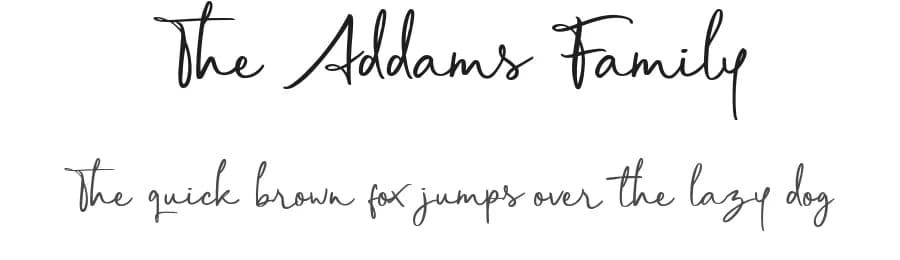 The Addams Family
The quick brown fox jumps over the lazy dog